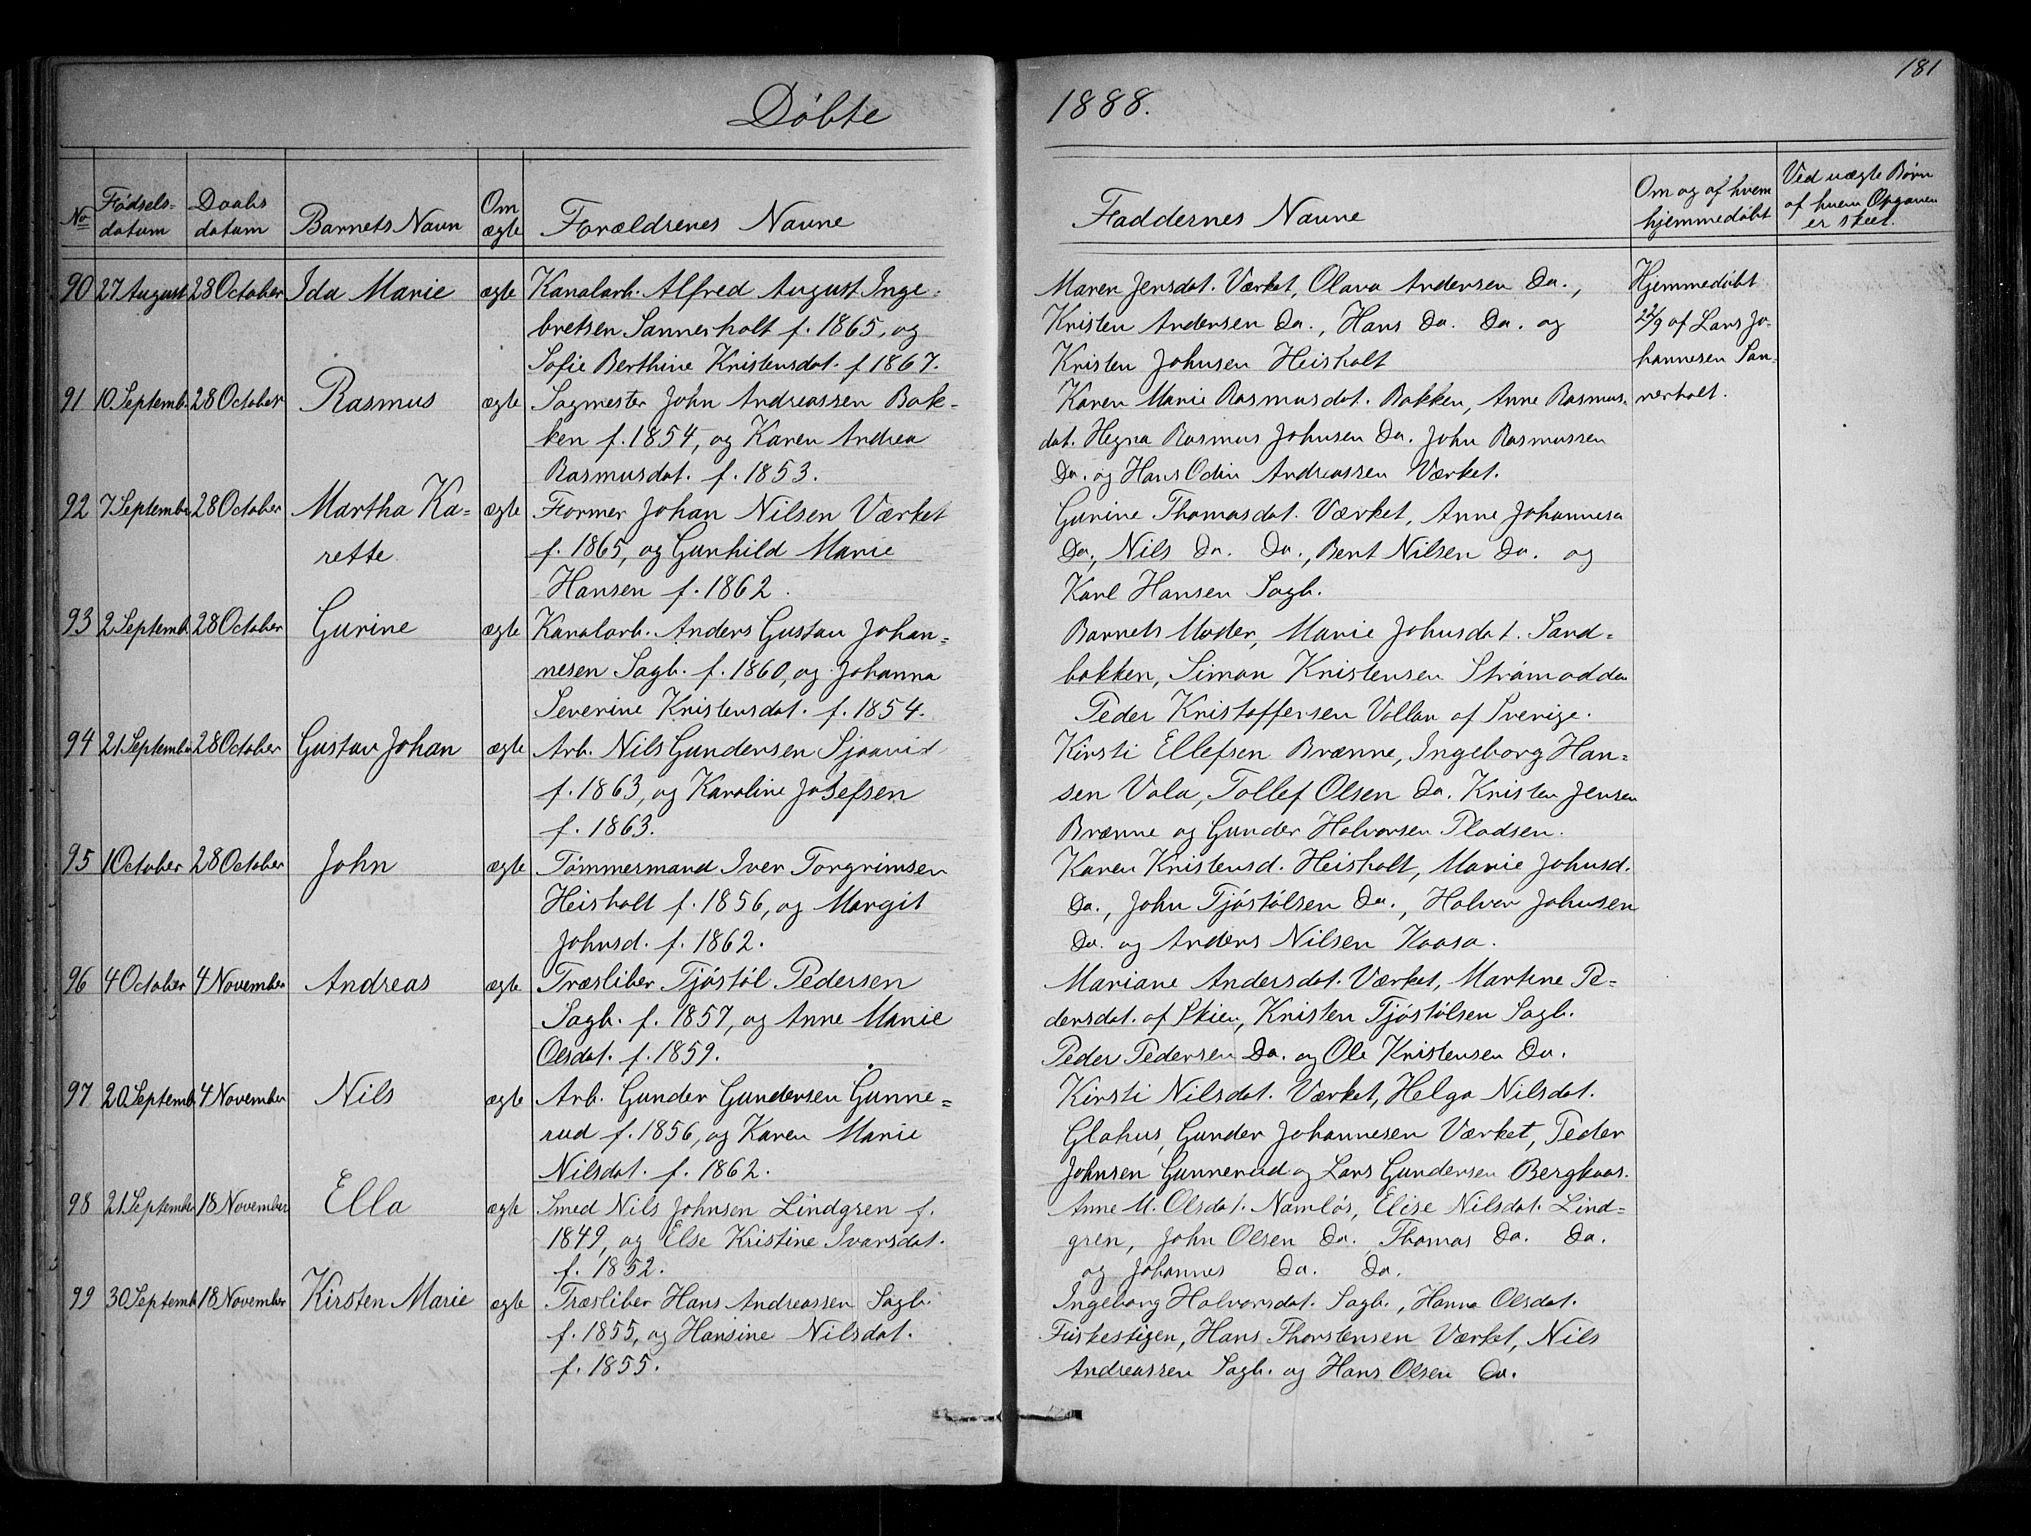 181
Döbte 1888.
No Födsels-datum Daabsdatum Barnets Navn Om ægte Forældrenes Navne Faddernes Navne Om og af hvem hjemmedöbt Ved uægte Børn af hvem Opgaven er skeet.
90 27 August 28 October Ida Marie ægte Kanalarb. Alfred August Inge- Maren Jensdat. Værket, Olava Andersen Do., Hjemmedöbt
bretsen Sannerholt f. 1865, og Kristen Andersen Do., Hans Do. Do. og af Lars Jo-
Sofie Berthine Kristensdat. f 1867. Kristen Johnsen Heisholt hannesen San-
91 10 Septemb. 28 October Rasmus ægte Sagmester John Andreassen Bak- Karen Marie Rasmusdat. Bakken, Anne Rasmus- nerholt.
ken f. 1854, og Karen Andrea dat. Hegna Rasmus Johnsen Do. John Rasmussen
Rasmusdat. f. 1853. Do. og Hans Odin Andreassen Værket.
92 7 September 28 October Martha Ka- ægte Former Johan Nilsen Værket Gurine Thomasdat. Værket, Anne Johannesen
rette f. 1865, og Gunhild Marie Do., Nils Do. Do., Bent Nilsen Do. og
Hansen f. 1862. Karl Hansen Sagb.
93 2 Septemb. 28 October Gurine ægte Kanalarb. Anders Gustav Johan- Barnets Moder, Marie Johnsdat. Sand-
nesen Sagb. f. 1860, og Johanna bakken, Simon Kristensen Strömodden
Severine Kristensdat. f. 1854. Peder Kristoffersen Vollan af Sverige.
94 21 September 28 October Gustav Johan ægte Arb. Nils Gundersen Kirsti Ellefsen Brænne, Ingeborg Han-
f. 1863, og Karoline Josefsen sen Vala, Tollef Olsen Do. Kristen Jensen
f. 1863. Brænne og Gunder Halvorsen Pladsen.
95 1 October 28 October John ægte Tömmermand Iver Torgrimsen Karen Kristensd. Heisholt, Marie Johnsd.
Heisholt f. 1856, og Margit Do., John Tjöstölsen Do., Halvor Johnsen
Johnsd. f. 1862. Do. og Anders Nilsen Kaasa.
96 4 October 4 November Andreas ægte Træsliber Tjöstöl Pedersen Mariane Andersdat. Værket, Martine Pe-
Sagb. f. 1857, og Anne Marie dersdat. af Skien, Kristen Tjöstölsen Sagb.
Olsdat. f. 1859. Peder Pedersen Do. og Ole Kristensen Do.
97 20 Septemb 4 November Nils ægte Arb. Gunder Gundersen Gunne- Kirsti Nilsdat. Værket, Helga Nilsdat.
rud f. 1856, og Karen Marie Glahus, Gunder Johannesen Værket, Peder
Nilsdat. f. 1862. Johnsen Gunnerud og Lars Gundersen Bergkaas.
98 21 September 18 November Ella ægte Smed Nils Johnsen Lindgren f. Anne M. Olsdat. Namlös, Elise Nilsdat. Lind-
1849, og Else Kristine Ivarsdat. gren, John Olsen Do. Thomas Do. Do.
f. 1852. og Johannes Do. Do.
99 30 Septemb 18 November Kirsten Marie ægte Træsliber Hans Andreassen Sagb. Ingeborg Halvorsdat. Sagb., Hanna Olsdat.
f. 1855, og Hansine Nilsdat. Fiskestigen, Hans Thorstensen Værket, Nils
f. 1855. Andreassen Sagb. og Hans Olsen Do.